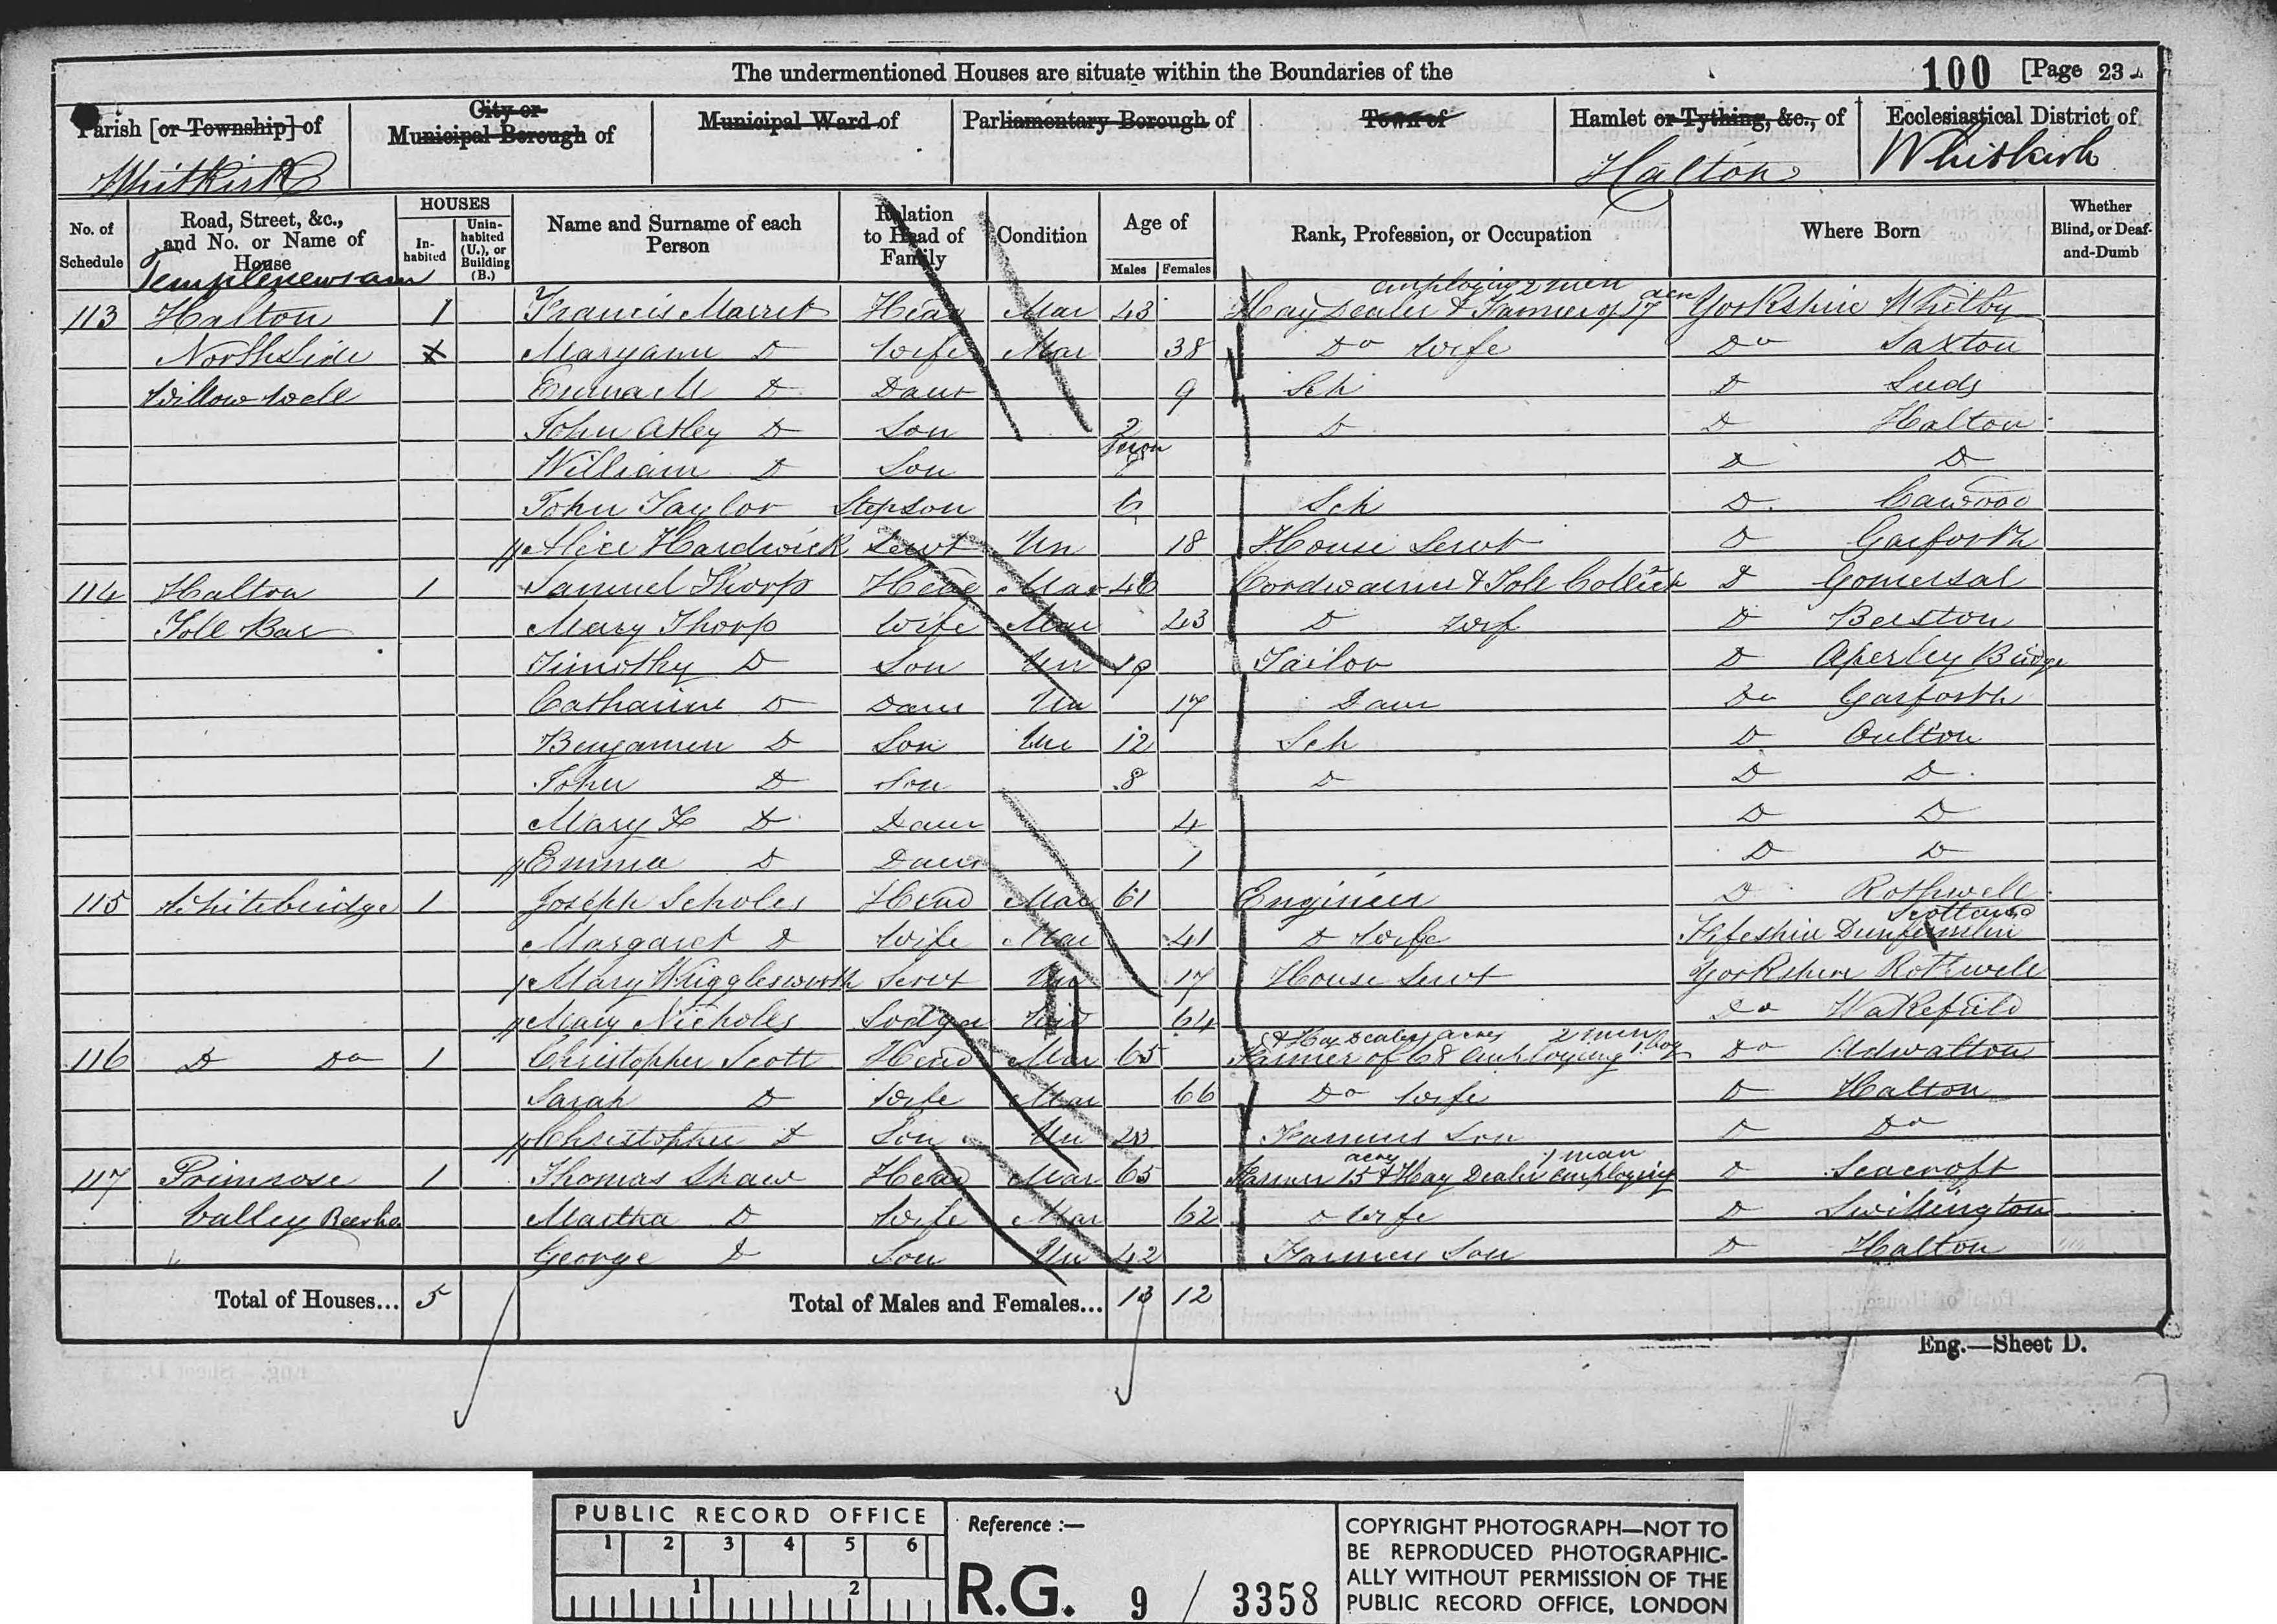 The undermentioned Houses are situate within the Boundaries of the
100 [Page 23
Parish [or Township] of
City or Municipal Borough of
Municipal Ward of
Parliamentary Borough of
Town of
Hamlet or Tything, &c., of
Ecclesiastical District of
Whitkirk
Halton
Whitkirk
No. of Schedule
Road, Street, &c., and No. or Name of House
HOUSES
In-habited
Unin-habited (U.), or Building (B.)
Name and Surname of each Person
Relation to Head of Family
Condition
Age of
Males
Females
Rank, Profession, or Occupation
Where Born
Whether Blind, or Deaf-and-Dumb
Templenewsam
employing 2 men
113 Halton 1 Francis Marret Head Mar 43 Hay Dealer & Farmer of 17 acres Yorkshire Whitby
Northside Maryann D Wife Mar 38 Do Wife Do Saxton
Willow Well Emma M D Daur 9 Sch D Leeds
John Astey D Son 2 D D Halton
William D Son D D
John Taylor Stepson 6 Sch D Cawood
Alice Hardwick Servt Un 18 House Servt D Garforth
114 Halton 1 Samuel Thorp Head Mar 46 Cordwainer & Toll Collectr D Gomersal
Toll Bar Mary Thorp Wife Mar 43 D Wif D Beeston
Timothy D Son Un 19 Tailor D Aperley Bridge
Catharine D Daur Un 17 Daur Do Garforth
Benjamin D Son Un 12 Sch D Oulton
John D Son 8 D D D
Mary D Daur 4 D D
Emma D Daur 1 D D
115 Whitebridge 1 Joseph Scholes Head Mar 61 Engineer D Rothwell
Scotland
Margaret D Wife Mar 41 D Wife Fifeshire Dunfermlin
Mary Wrigglesworth Servt Un 17 House Servt Yorkshire Rothwell
Mary Nicholls Lodger Wid 64 Do Wakefield
& Hay Dealer acres 2 men
116 D Do 1 Christopher Scott Head Mar 65 Farmer of 68 employing 1 boy Do Adwalton
Sarah D Wife Mar 66 Do Wife D Halton
Christopher D Son Un 23 Farmers Son D Do
acres 1 man
117 Primrose 1 Thomas Shaw Head Mar 65 Farmer 15 & Hay Dealer employing D Seacroft
Valley Beerho Martha D Wife Mar 62 D Wife D Swillington
George D Son Un 42 Farmers Son D Halton
Total of Houses... 5
Total of Males and Females... 13 12
Eng.—Sheet D.
PUBLIC RECORD OFFICE
1 2 3 4 5 6
1 2
Reference :—
R.G. 9 / 3358
COPYRIGHT PHOTOGRAPH—NOT TO
BE REPRODUCED PHOTOGRAPHIC-
ALLY WITHOUT PERMISSION OF THE
PUBLIC RECORD OFFICE, LONDON